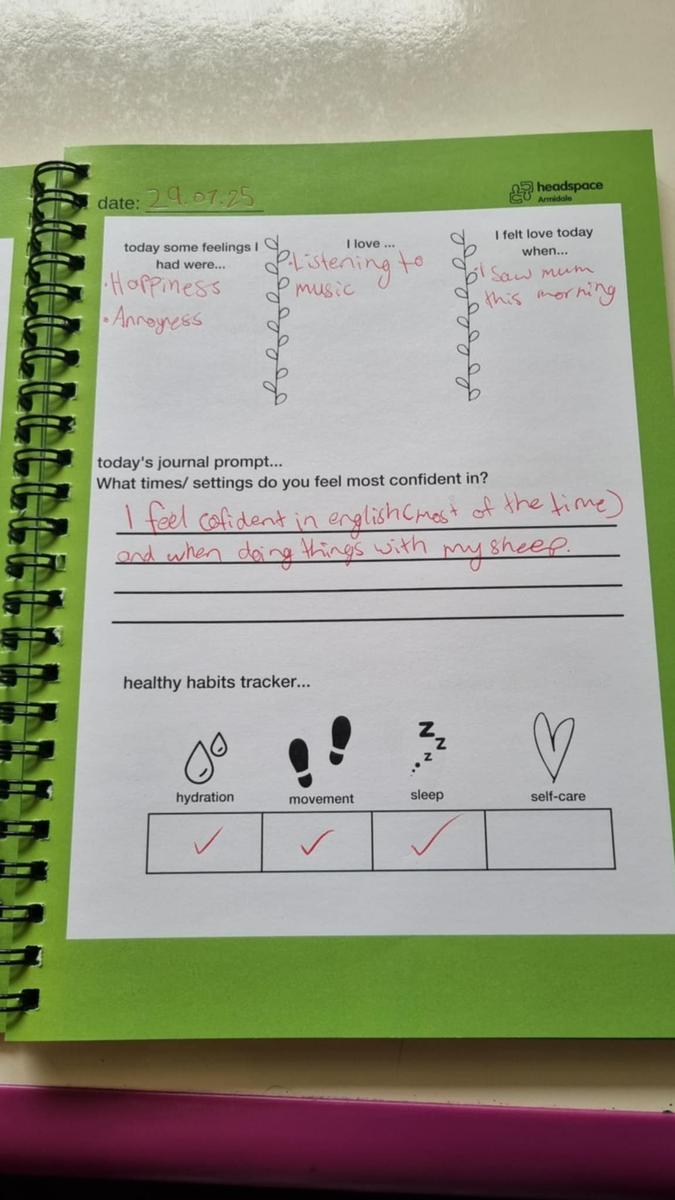 date: 29.07.25
headspace
Armidale
today some feelings I
had were...
• Happiness
• Annoyness
I love ...
• Listening to
music
I felt love today
when...
• I saw mum
this morning
today's journal prompt...
What times/ settings do you feel most confident in?
I feel cofident in english(most of the time)
and when doing things with my sheep.
healthy habits tracker...
z
z
z
hydration
movement
sleep
self-care